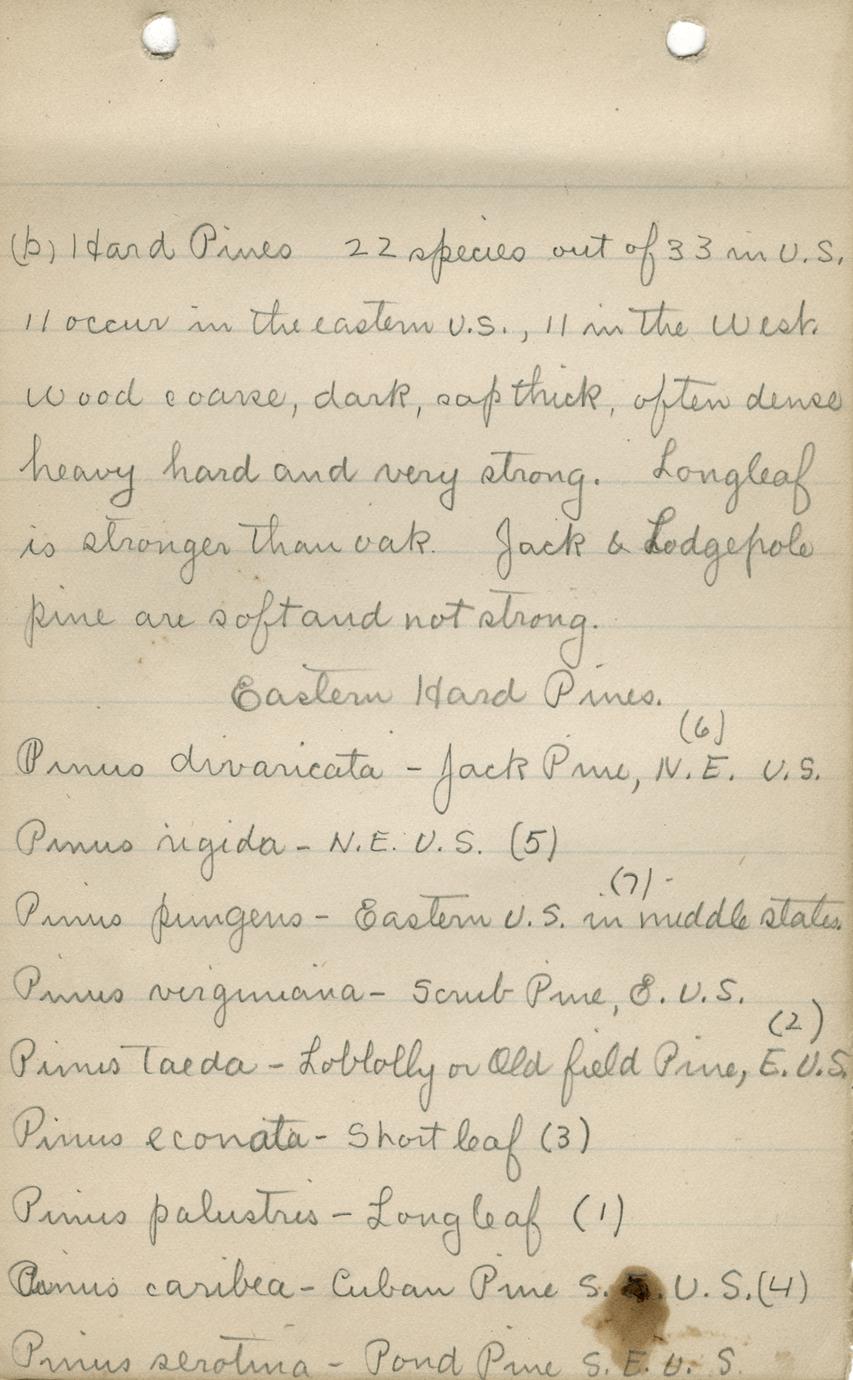 (b) Hard Pines 22 species out of 33 in U.S.
11 occur in the eastern U.S., 11 in the West.
Wood coarse, dark, sap thick, often dense
heavy hard and very strong. Longleaf
is stronger than oak. Jack & Lodgepole
pine are soft and not strong.
Eastern Hard Pines.
(6)
Pinus divaricata - Jack Pine, N.E. U.S.
Pinus rigida - N.E. U.S. (5)
(7) -
Pinus pungens - Eastern U.S. in middle states.
Pinus virginiana - Scrub Pine, E. U.S.
(2)
Pinus Taeda - Loblolly or Old field Pine, E. U.S.
Pinus econata - Short leaf (3)
Pinus palustris - Long leaf (1)
Pinus caribea - Cuban Pine S. E. U.S. (4)
Pinus serotina - Pond Pine S. E. U. S.